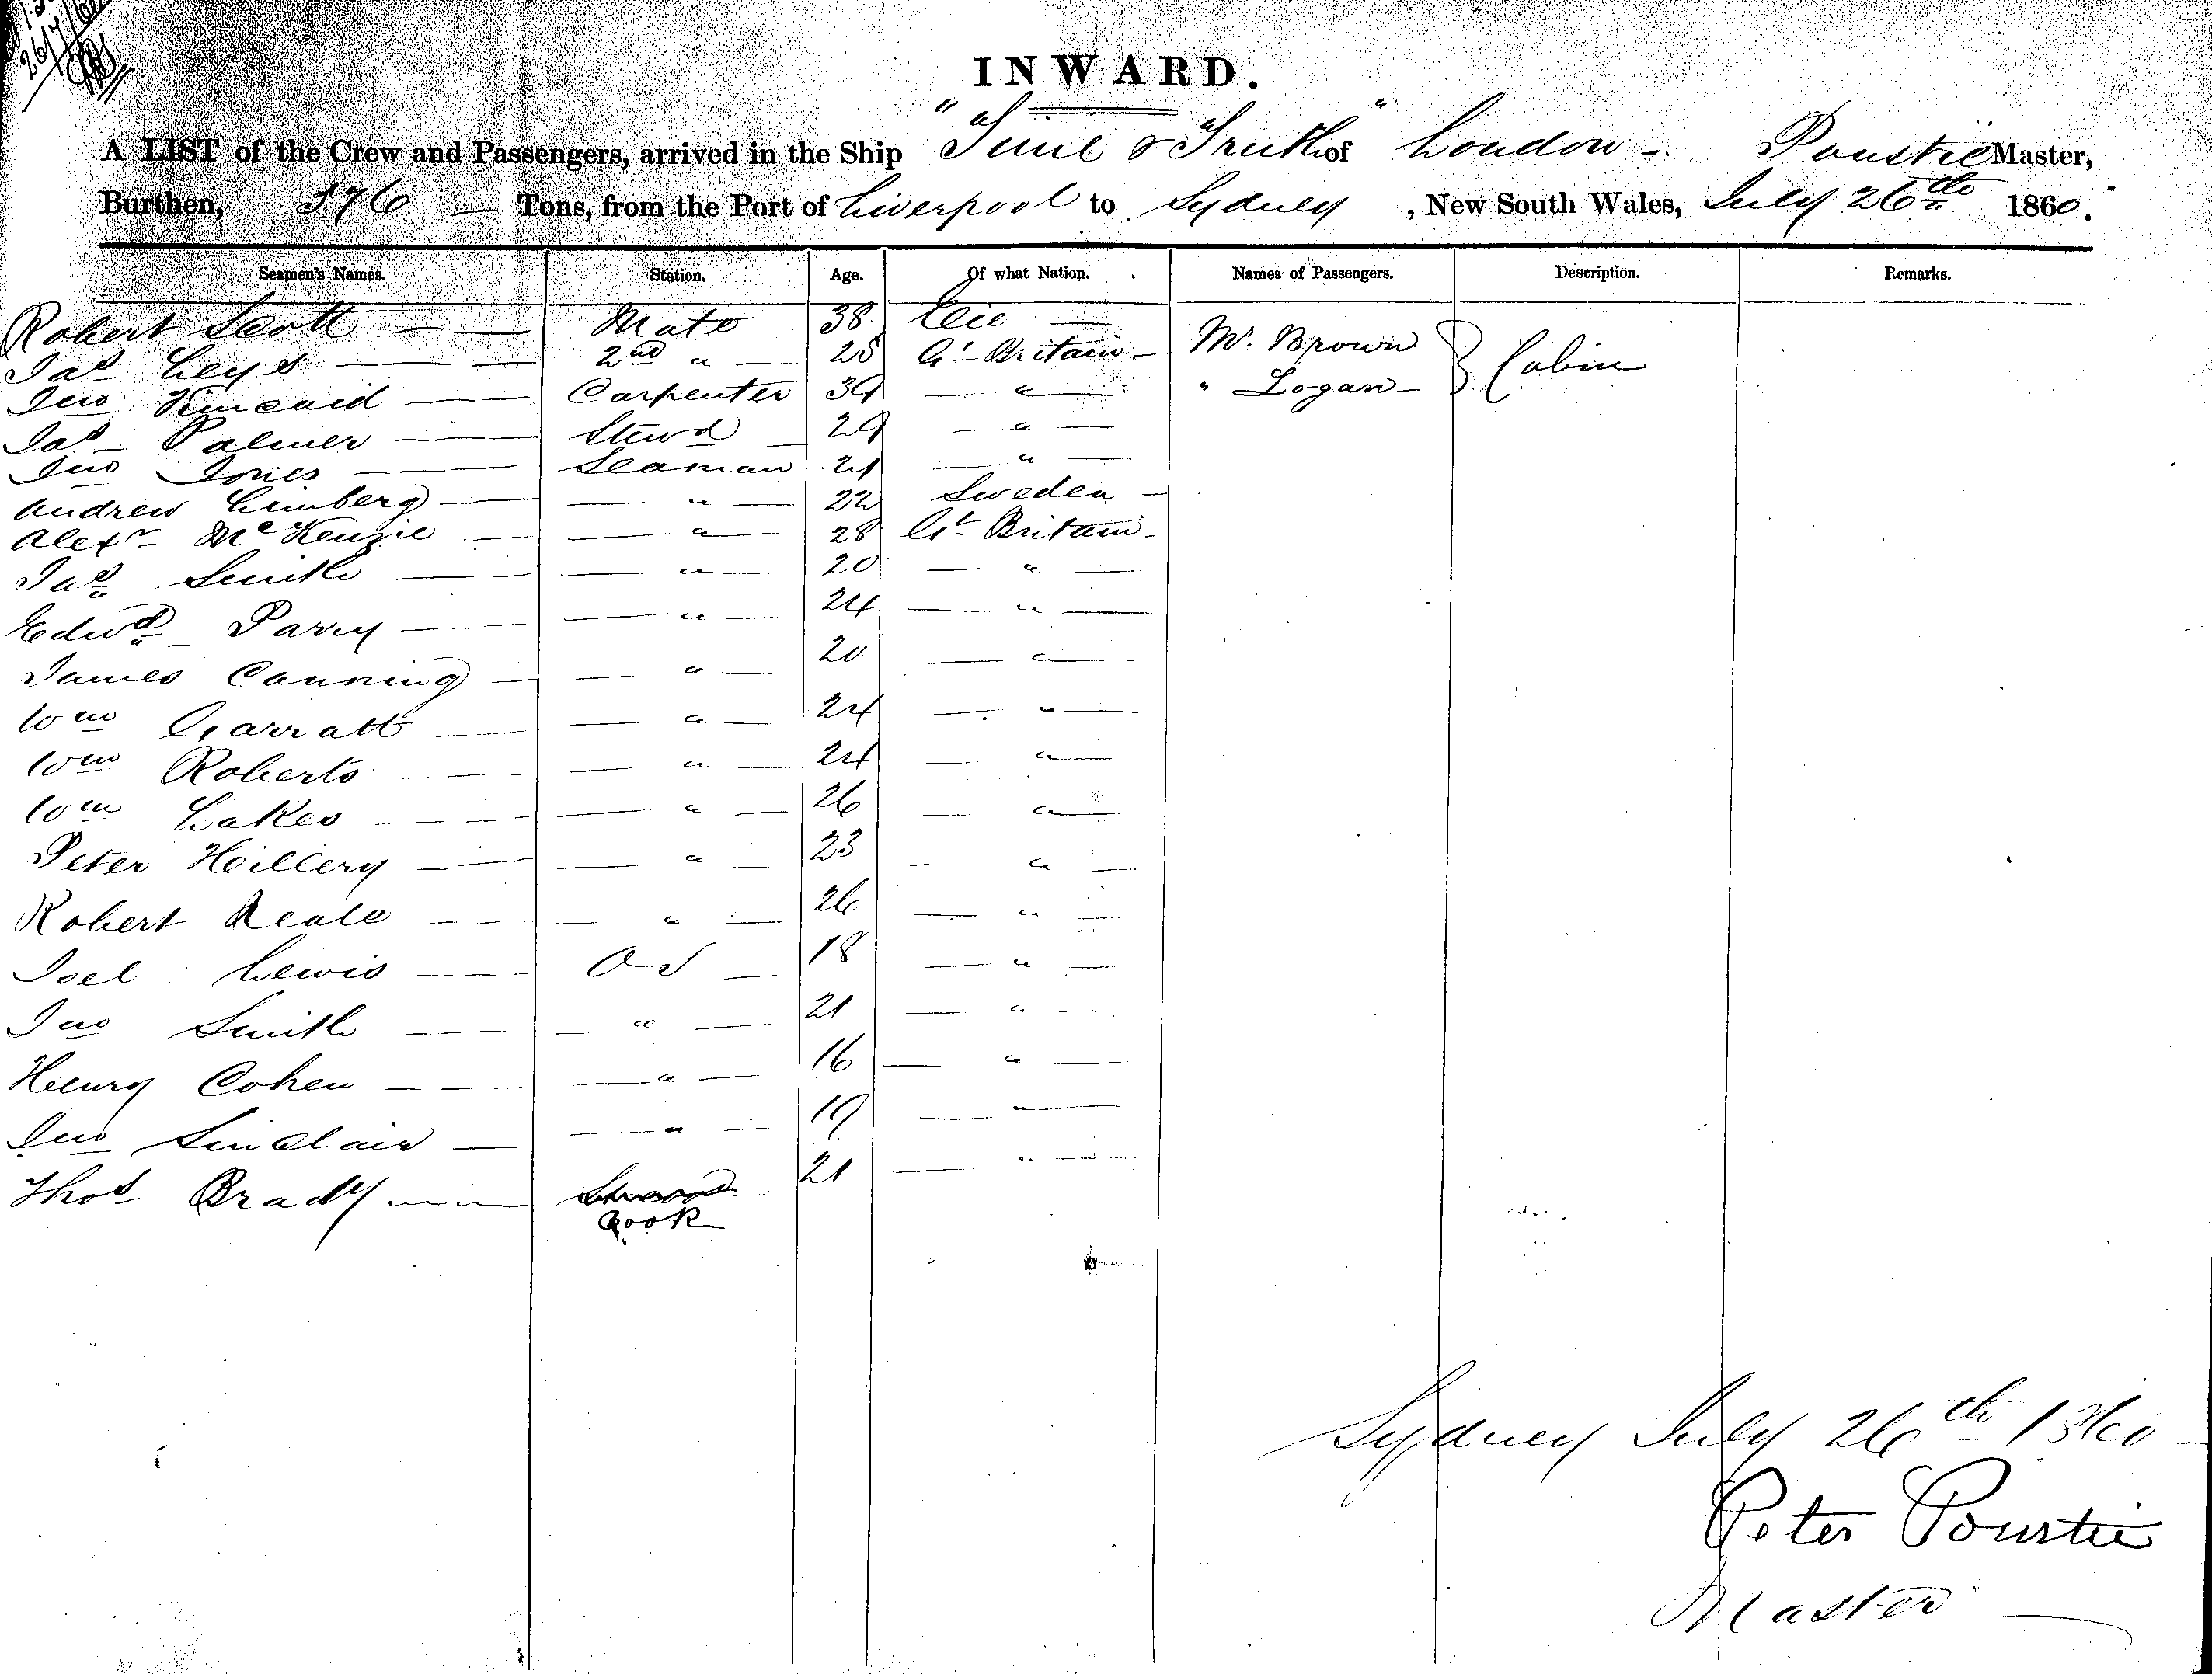 26/7/60
INWARD.
A LIST of the Crew and Passengers, arrived in the Ship "Time & Truth" of London - Poustie Master,
Burthen, 576 Tons, from the Port of Liverpool to Sydney, New South Wales, July 26th 1860.
Seamen's Names. Station. Age. Of what Nation. Names of Passengers. Description. Remarks.
Robert Scott Mate 38 Elie Mr. Brown } Cabin
Jas Leys 2nd " 25 Gt Britain " Logan
Jno Kincaid Carpenter 39 "
Jas Palmer Stewd 29 "
Jno Jones Seaman 21 "
Andrew Limberg " 22 Sweden
Alexr McKenzie " 28 Gt Britain
Jas Smith " 20 "
Edwd Parry " 24 "
James Canning " 20 "
Wm Garratt " 24 "
Wm Roberts " 24 "
Wm Lakes " 26 "
Peter Hillery " 23 "
Robert Neale " 26 "
Joel Lewis OS 18 "
Jno Smith " 21 "
Henry Cohen " 16 "
Jno Sinclair " 19 "
Thos Brady 21 "
Cook
Sydney July 26th 1860
Peter Poustie
Master